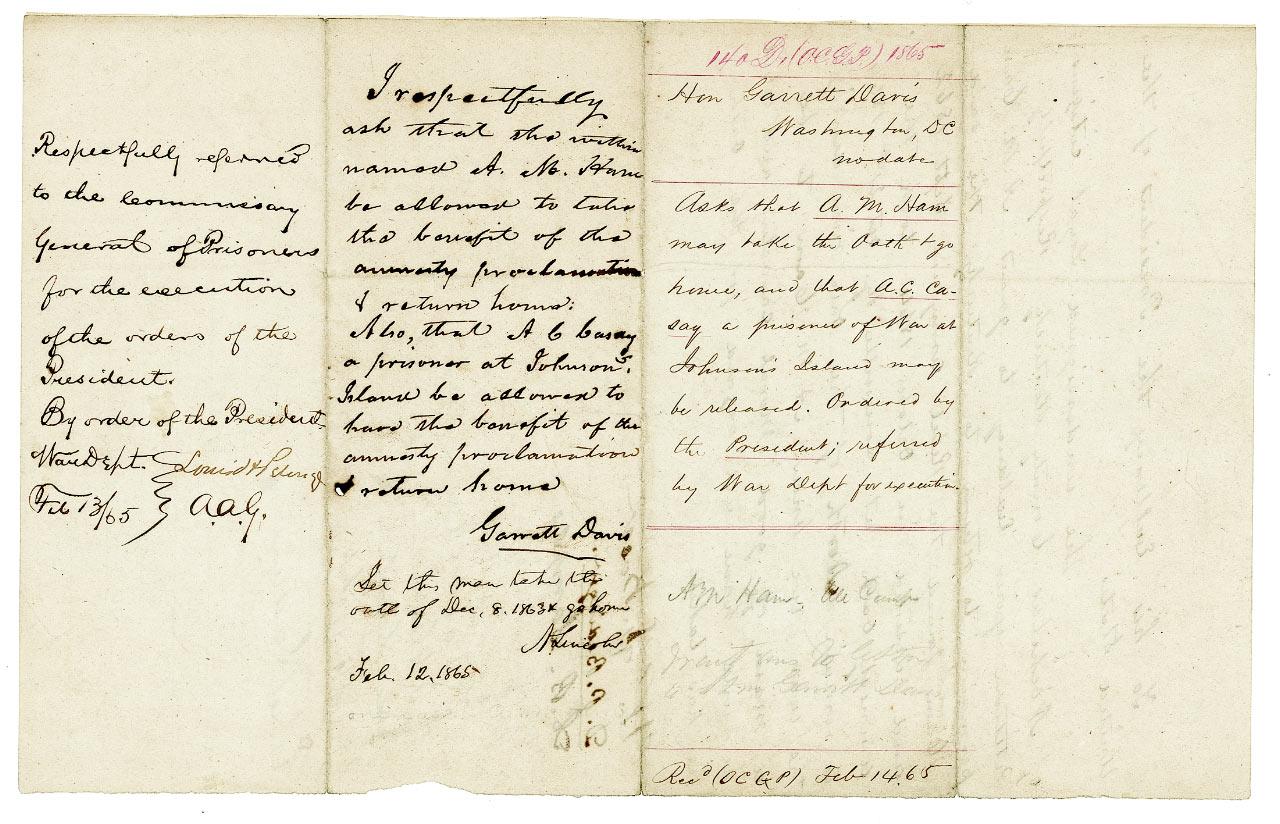 Respectfully referred
to the Commissary
General of Prisoners
for the execution
of the orders of the
President.
By order of the President
War Dept.
Feb 13/65
A.A.G.
I respectfully
ask that the within
named A. M. Ham
be allowed to take
the benefit of the
amnesty proclamation
& return home:
Also, that A C Casay
a prisoner at Johnson's
Island be allowed to
have the benefit of the
amnesty proclamation
& return home
Garrett Davis
Let this man take the
oath of Dec. 8. 1863 & go home
A Lincoln
Feb. 12, 1865
140 D. (O.C.G.P.) 1865
Hon Garrett Davis
Washington, DC
no date
Asks that A. M. Ham
may take the Oath & go
home, and that A.C. Ca-
say a prisoner of War at
Johnson's Island may
be released. Ordered by
the President; referred
by War Dept for execution.
A M Ham
Recd (OC G P) Feb 14. 65